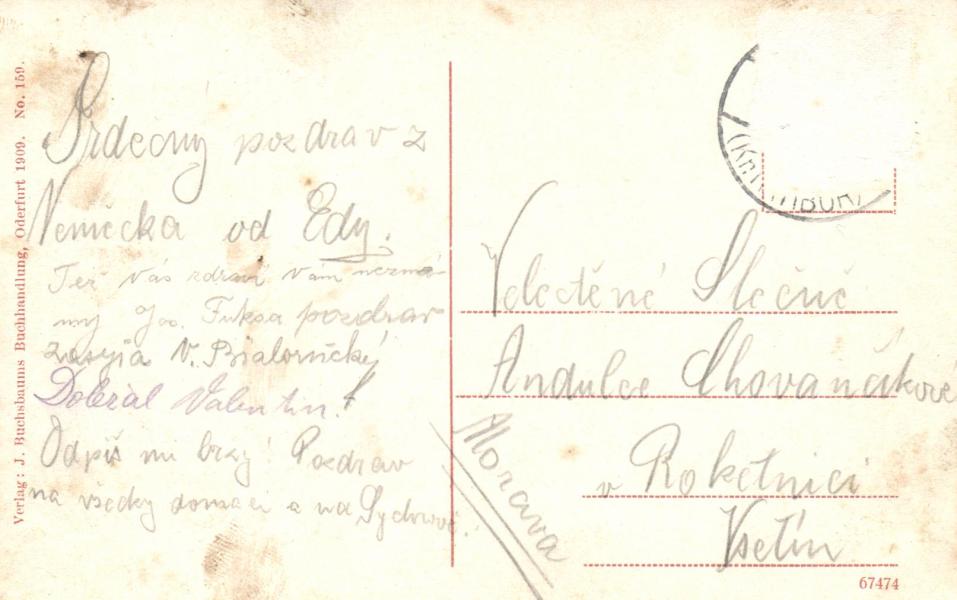 Verlag: J. Buchsbaums Buchhandlung, Oderfurt 1909. No. 159.
Srdečný pozdrav z
Německa od Edy.
Též Vás zdraví Vám nezná
mý Jos. Fuksa pozdrav
zasyła V. Bialornický
Doležal Valentin.
Odpiš mi brzy! Pozdrav
na všecky domácí a na
Veletěné Slečně
Andulce Chovančákové
v Roketnici
Vsetín
Morava
67474